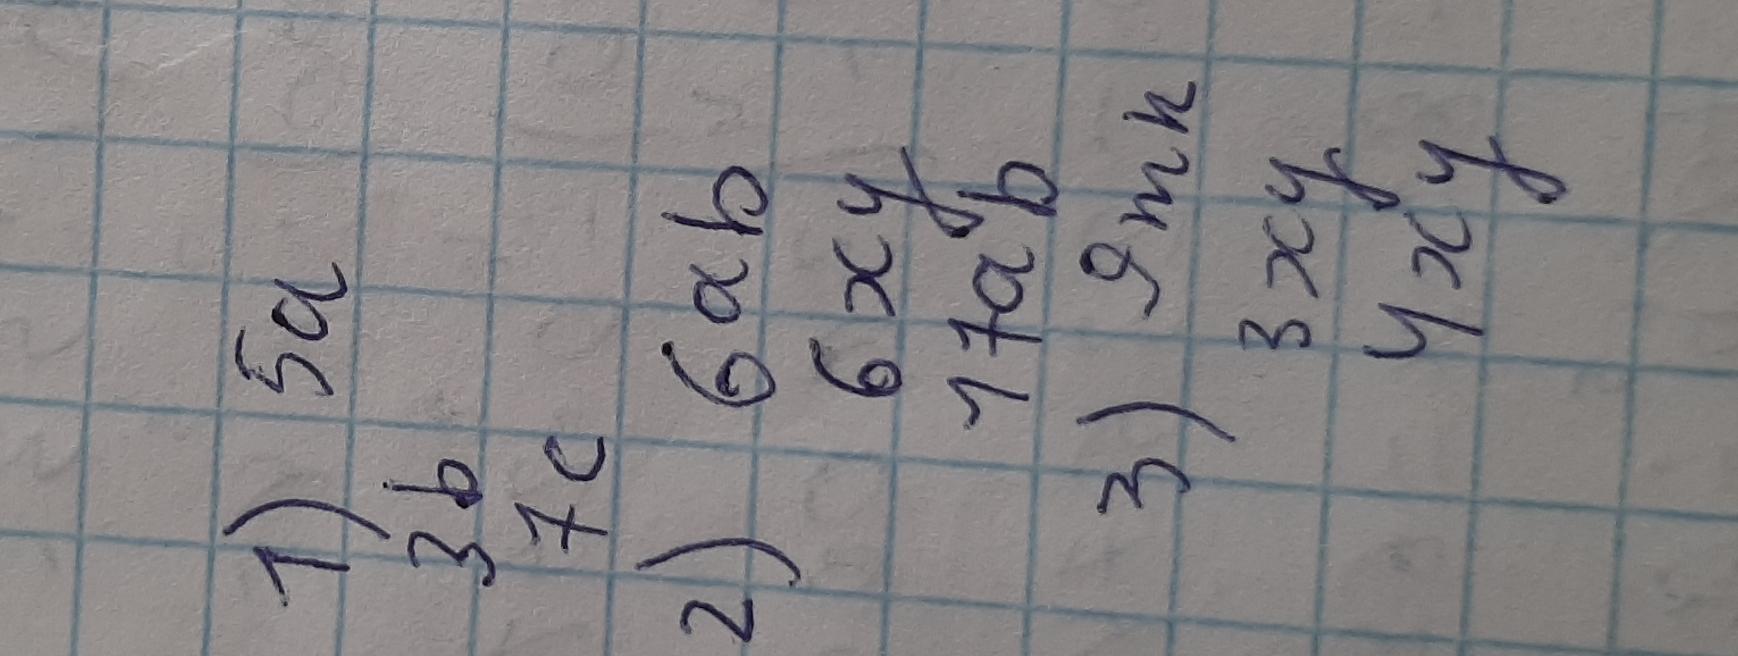 1) 5a
3b
7c
2) 6ab
6xy
17ab
3) 9mn
3xy
4xy